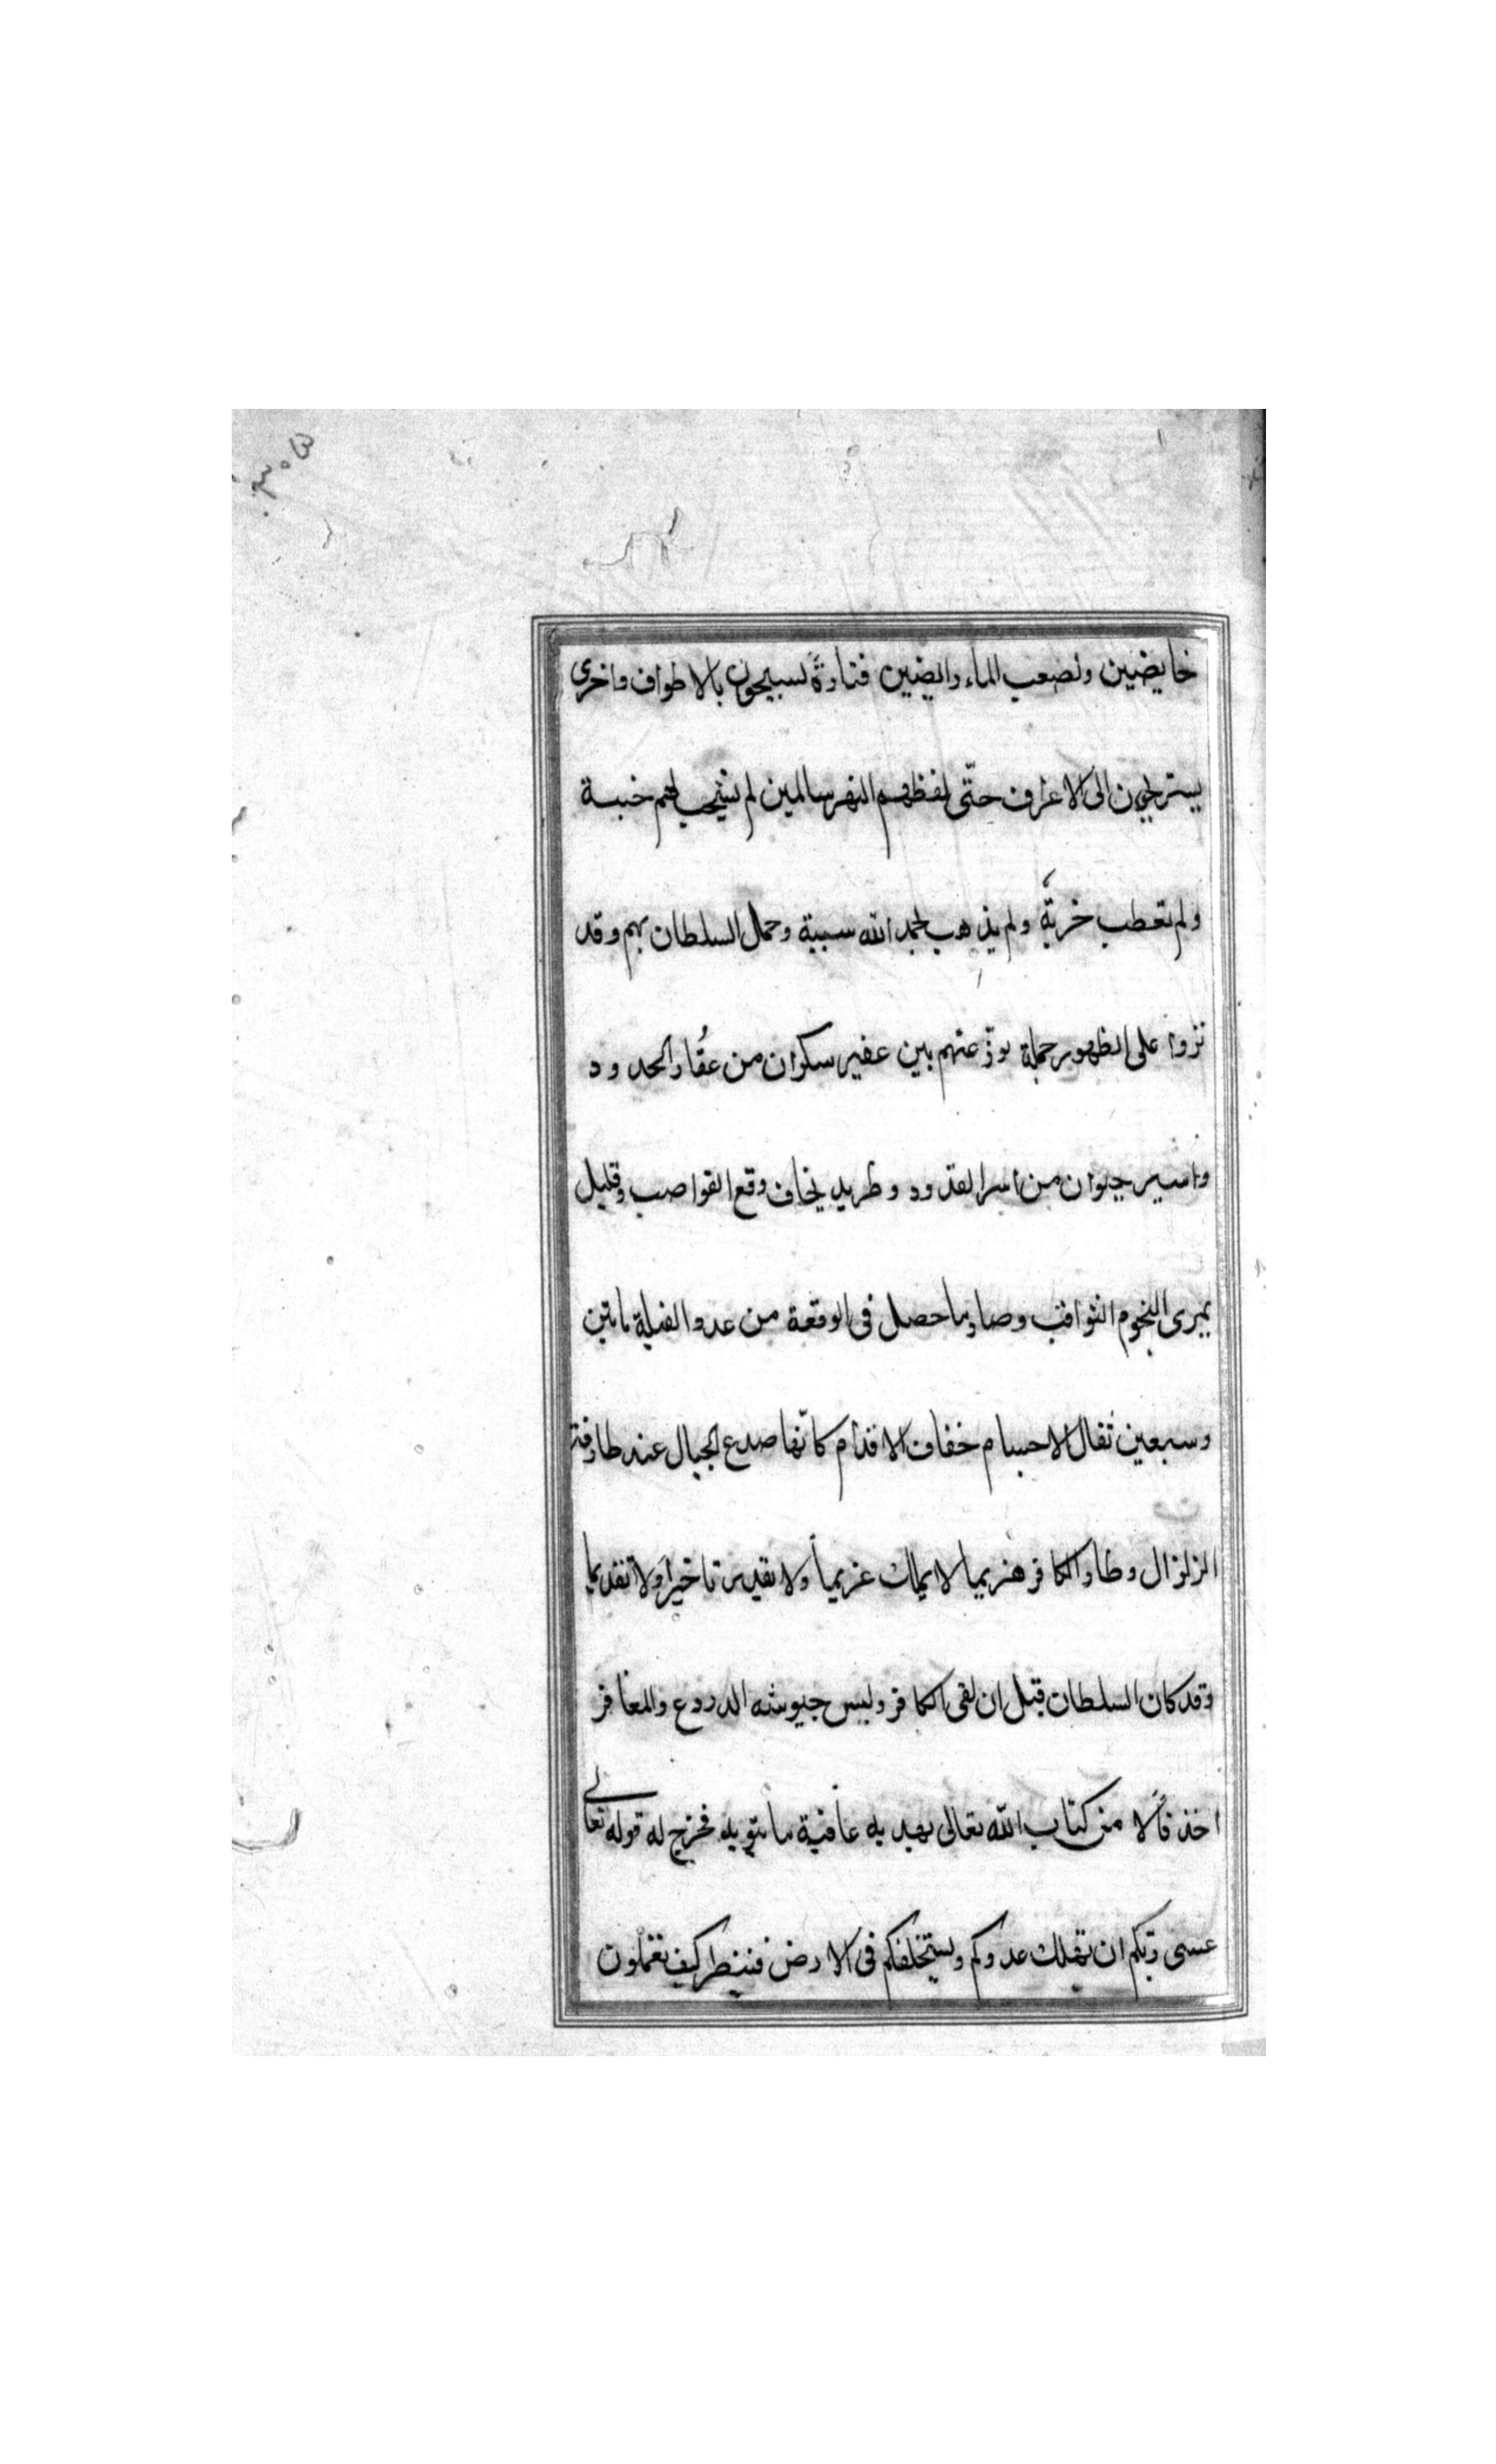 خايضين ولصعب الماء رايضين فتارةً يسبحون بالاطواف واخرى
يستريحون الى الاعراف حتّى لفظهم النهر سالمين لم تشجب لهم خبسة
ولم تعطب خربة ولم يذهب بحمد الله سبية وحمل السلطان بهم وقد
نزوا على الظهور حملة توزّعتهم بين عفير سكران من عُقار الحدود
واسير حيوان من اسر القدود وطريد يخاف وقع القواصب وقليل
يرى النجوم الثواقب وصار ما حصل فى الوقعة من عدد الفيلة ماتين
وسبعين ثقال الاجسام خفاف الاقدام كانّها صدع الجبال عند طارفة
الزلزال وطار الكافر هزيما لا يملك عزيماً ولا يقدر تاخيرا ولا تقديما
وقد كان السلطان قبل ان لقى الكافر ولبس جيوشه الدروع والمغافر
اخذ فألا من كتاب الله تعالى يهديه عاقبة ما ينويه فخرج له قوله تعالى
عسى ربّكم ان يهلك عدوكم ويستخلفكم فى الارض فينظر كيف تعملون